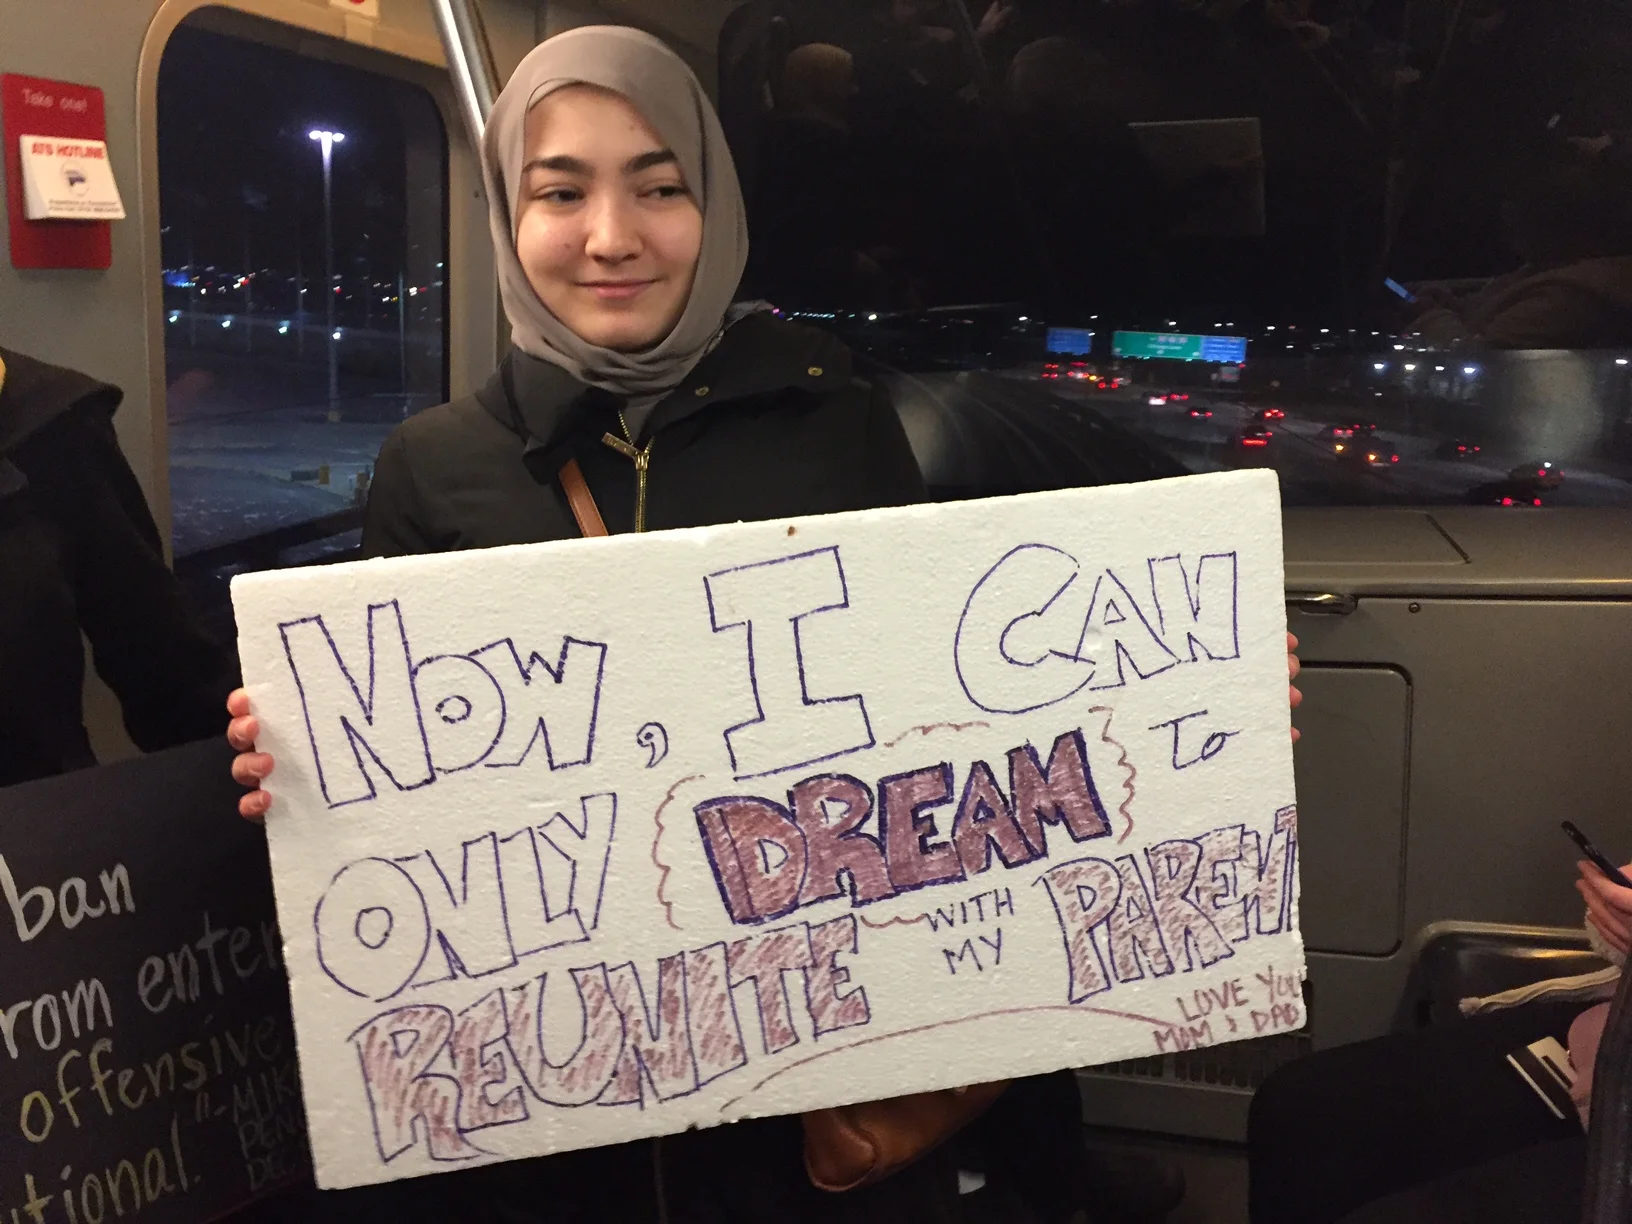 Take one!
ATS HOTLINE
NOW, I CAN
ONLY DREAM TO
REUNITE WITH MY PARENT
LOVE YOU
MOM & DAD
ban
rom enter
offensive
tional." - MIKE
PEN